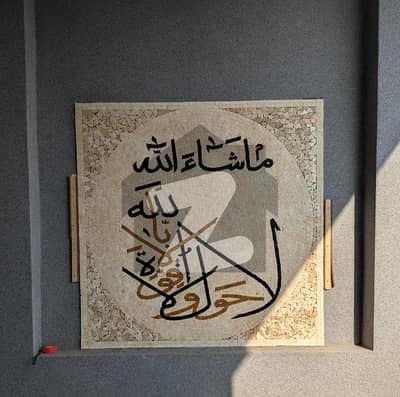 ما شَاءَ الله
لا حول ولا قوة إلا بالله